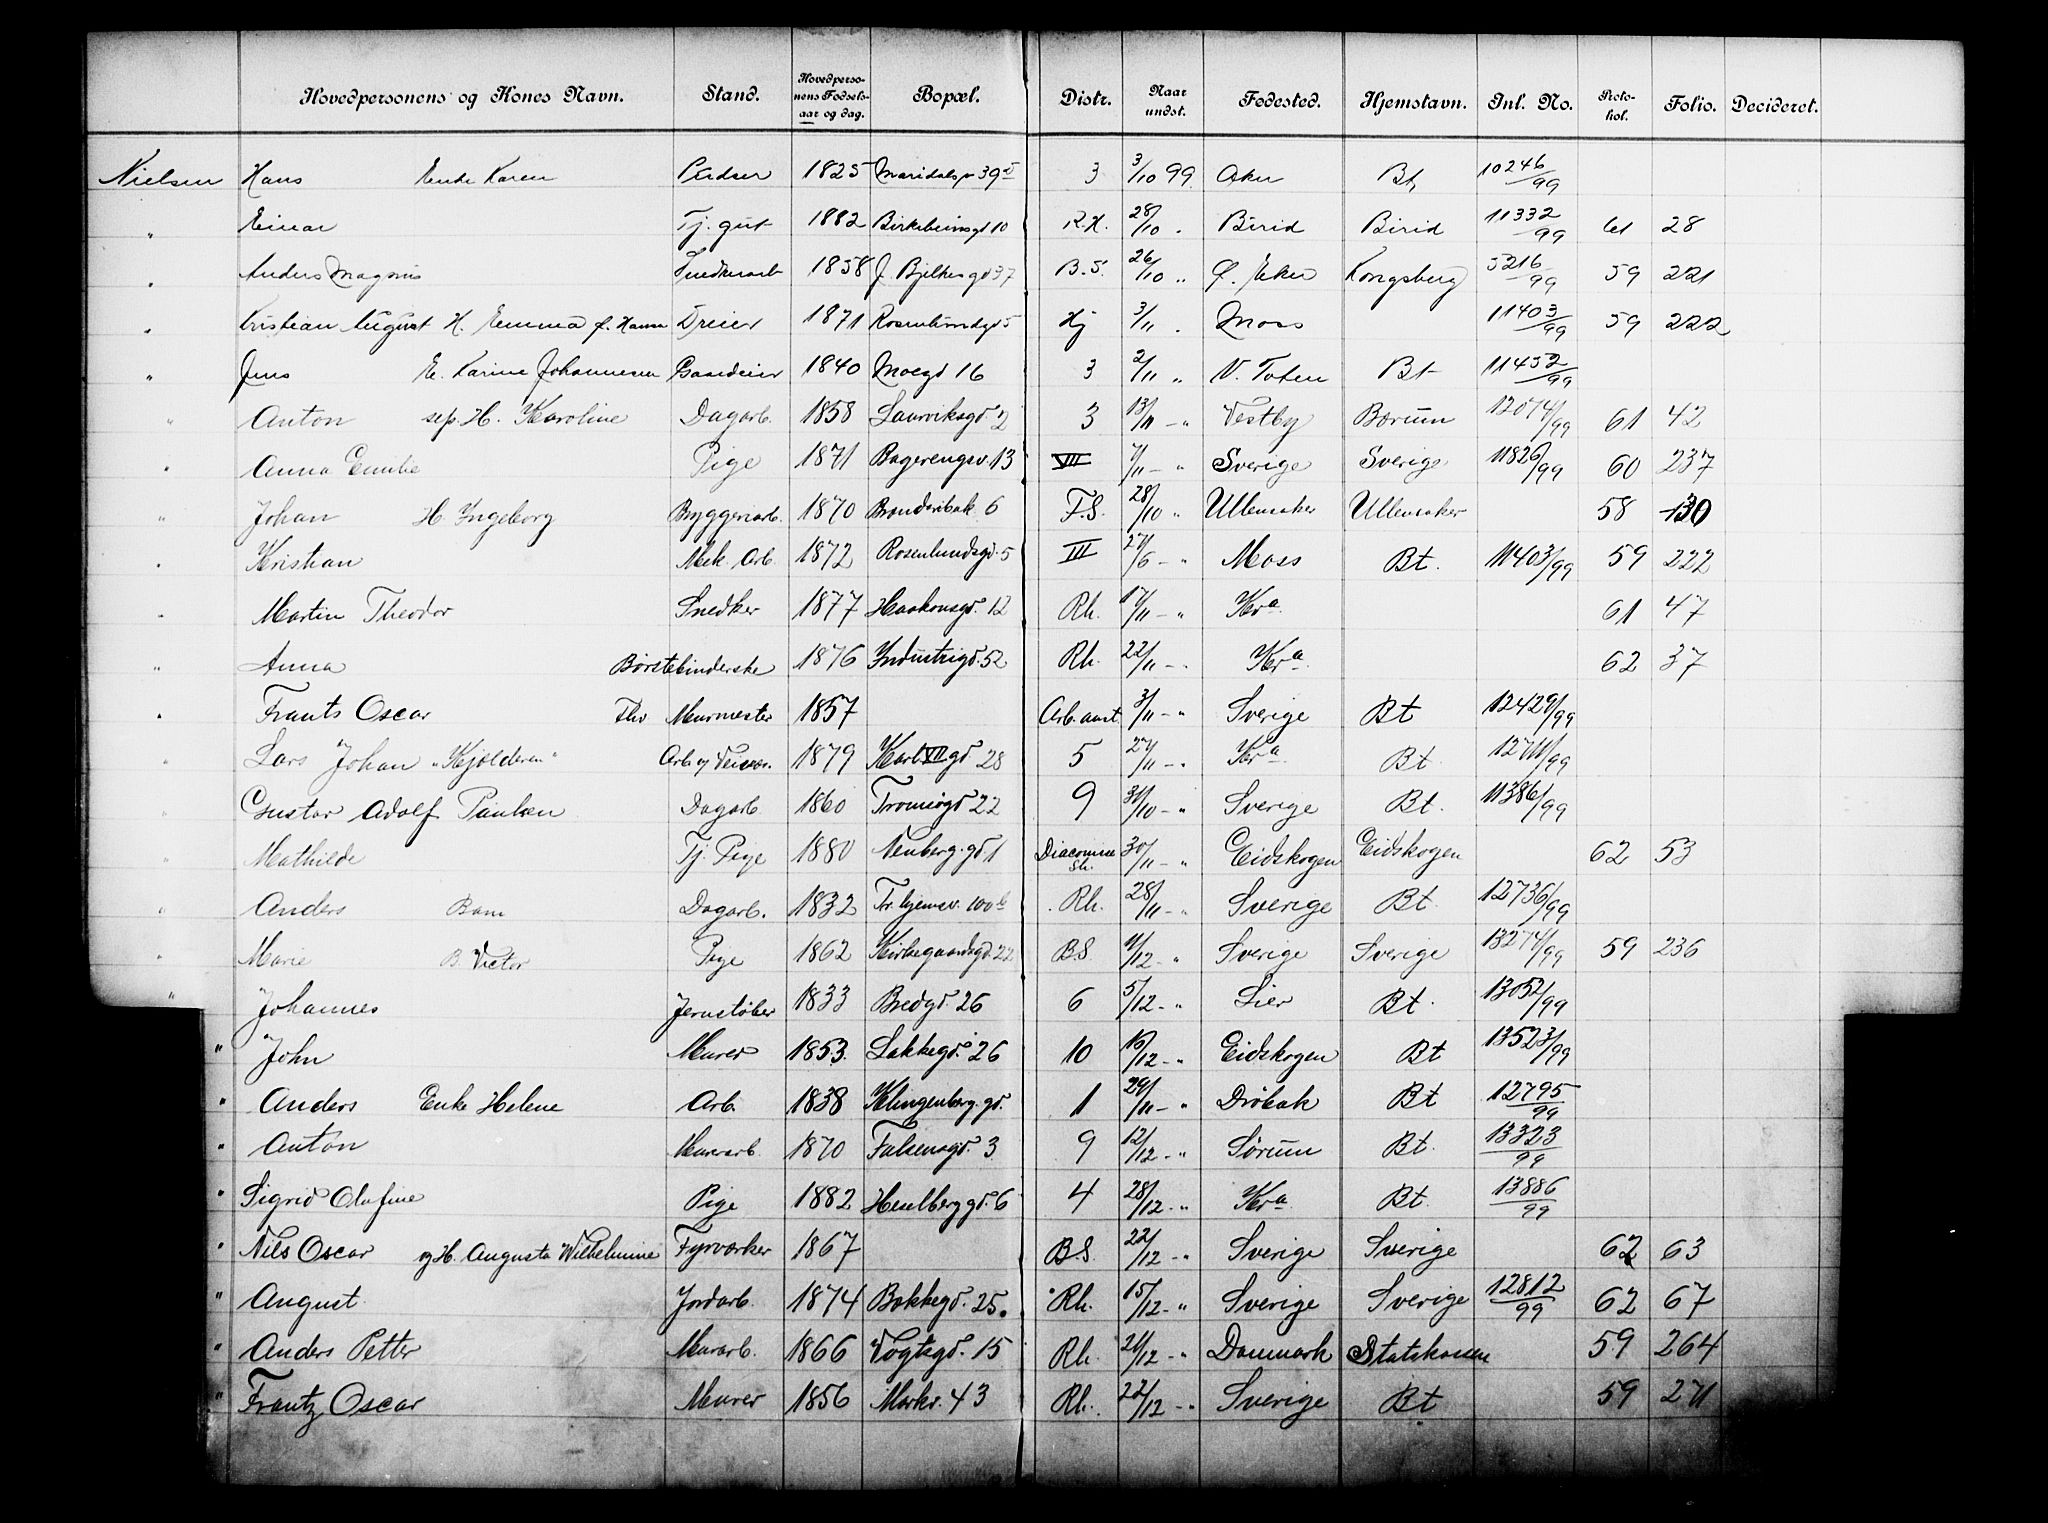 Hovedpersonens og Kones Navn. Stand. Hovedpersonens Fødselsaar og dag. Bopæl. Distr. Naar undst. Fødested. Hjemstavn. Inl. No. Protokol. Folio. Decideret.
Nielsen Hans Enke Karen Pudser 1825 Maridalsv 39 3 3/10 99. Aker Bt, 10246/99
" Einar Tj. gut 1882 Birkebeinsgd 10 R.H. 28/10 " Birid Birid 11332/99 61 28
" Anders Magnus Snedkerarb 1858 J. Bjelkes gd 37 B.S. 26/10 " Ø. Eker Kongsberg 5216/99 59 221
" Kristian August H. Emma f. Hansen Dreier 1871 Rosenlundgd 5 Hj 3/11 " Moss 11403/99 59 222
" Jens E. Karine Johannesen Gaardeier 1840 Moegd 16 3 2/11 " V. Toten Bt 11452/99
" Anton sep. H. Karoline Dagarb. 1858 Laurviksgd. 2 3 13/11 - " Vestby Bærum 12074/99 61 42
" Anna Emilie Pige 1871 Bagerengsv. 13 VIII 7/11 - " Sverige Sverige 11826/99 60 237
" Johan H. Ingeborg Bryggeriarb. 1870 Brandæibak 6 F.S. 28/10 " Ullensaker Ullensaker 58 130
" Kristian Mek. Arb. 1872 Rosenlundsgd. 5 III 27/6 - " Moss Bt. 11403/99 59 222
" Martin Theodor Snedker 1877 Haakonsgd. 12 Rh. 17/11 - " Kra 61 47
" Anna Børstebinderske 1876 Industrigd. 52 Rh. 22/11 - " Kra 62 37
" Frants Oscar Fhv Murmester 1857 Arb. anst. 3/11 - " Sverige Bt 12429/99
" Lars Johan "Kjølderen" Arb og Veiarb. 1879 Karl VII gd 28 5 27/11 - " Kra Bt. 12711/99
" Gustav Adolf Paulsen Dagarb. 1860 Tromsøgd 22 9 31/10 - " Sverige Bt. 11386/99
" Mathilde Tj. Pige 1880 Neuberg. gd 1 Diaconisse Sh. 30/11 - " Eidskogen Eidskogen 62 53
" Anders Barn Dagarb. 1832 Tr. hjemsv. 100b Rh. 28/11 - " Sverige Bt. 12736/99
" Marie B. Victor Pige 1862 Kirkegaardsgd. 22 B.S. 9/12 - " Sverige Sverige 13274/99 59 236
" Johannes Jernstøber 1833 Bredgd. 26 6 5/12 - " Lier Bt. 13052/99
" John Murer 1853. Lakkegd. 26 10 16/12 - " Eidskogen Bt 13523/99
" Anders Enke Helene Arb. 1838 Klingenberg. gd. 1 29/11 - " Drøbak Bt 12795/99
" Anton Murarb. 1870 Falsensgd. 3 9 12/12 - " Sørum Bt. 13323/99
" Sigrid Olafine Pige 1882 Heselberg gd. 6 4 28/12 - " Kra Bt. 13886/99
" Nils Oscar og H. Augusta Wilhelmine Fyrværker 1867 B.S. 22/12 - " Sverige Sverige 62 63
" August. Jordarb. 1874 Bakkegd. 25. Rh. 15/12 - " Sverige Sverige 12812/99 62 67
" Anders Petter Murarb. 1866 Vogtsgd. 15 Rh. 21/12 - " Danmark Statskassen 59 264
" Frantz Oscar Murer 1856 Markv. 43 Rh. 22/12 - " Sverige Bt 59 271